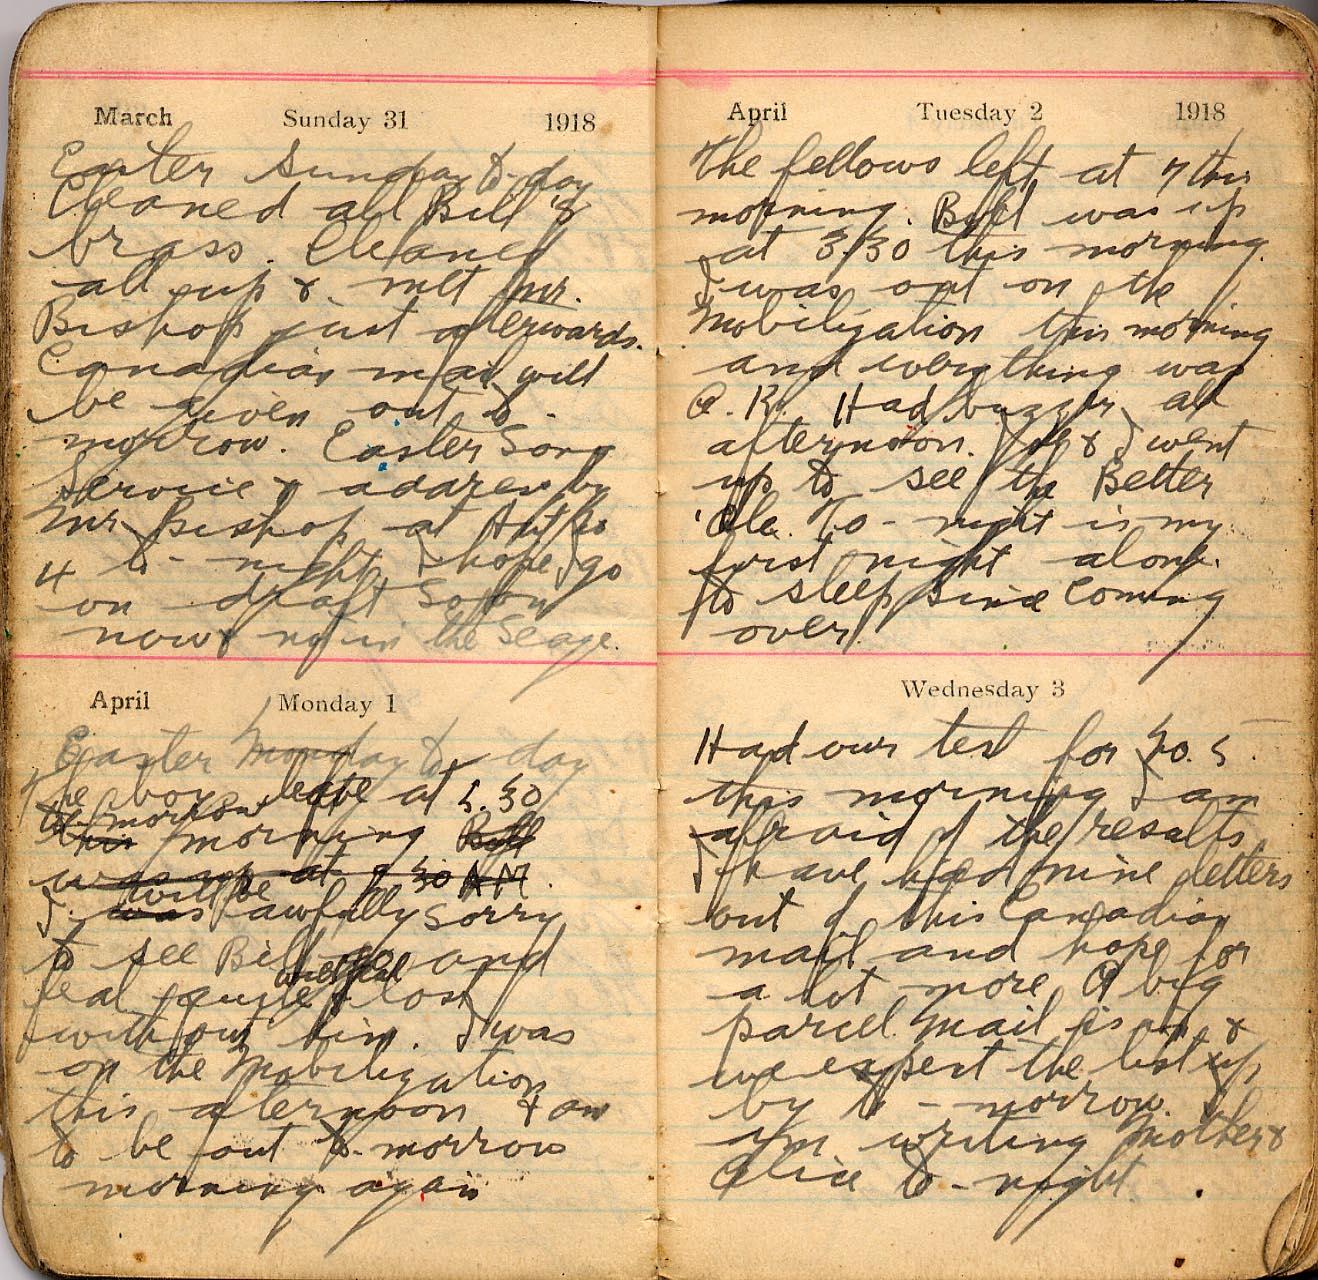 March Sunday 31 1918
Easter Sunday to-day
Cleaned all Bill's
brass. Cleaned
all up & met Mr.
Bishop just afterwards.
Canadian mail will
be given out to-
morrow. Easter Song
Service & address by
Mr Bishop at Hut No
4 to-night. I hope I go
on draft So
now & in the
April Monday 1
Easter Monday to-day
The boys leave at 5.30
to-morrow
this morning Bill
was up at 3 30 AM.
will be
I was awfully sorry
to see Bill go and
will feel
feal quite lost
without him. I was
on the Mobilization
this afternoon & am
to be out to-morrow
morning again
April Tuesday 2 1918
The fellows left at 7 this
morning. Bill was up
at 3.30 this morning.
I was out on the
Mobilization this morning
and everything was
O.K. Had buzzer all
afternoon. & I went
up to see the Better
'Ole. To-night is my
first night alone
to sleep since Coming
over.
Wednesday 3
Had our test for No. 5
this morning I am
afraid of the results.
I have had nine letters
out of this Canadian
mail and hope for
a lot more. A big
parcel mail is in &
we expect the list up
by to-morrow.
I'm writing Mother &
Alice to-night.